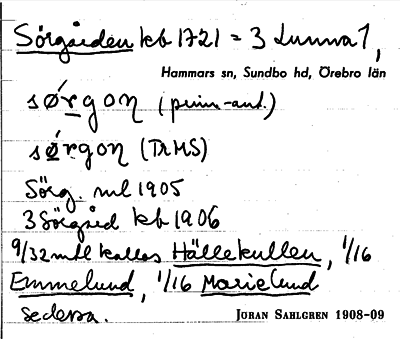 Sörgården kb 1721 = 3 Lunna 1,
Hammars sn, Sundbo hd, Örebro län
sørgon (prim-and.)
sørgon (TRMS)
Sörg. ml 1905
3 Sörgård kb 1906
9/32 mtl kallas Hällekullen, 1/16
Emmelund, 1/16 Marielund
sedera.
JÖRAN SAHLGREN 1908-09